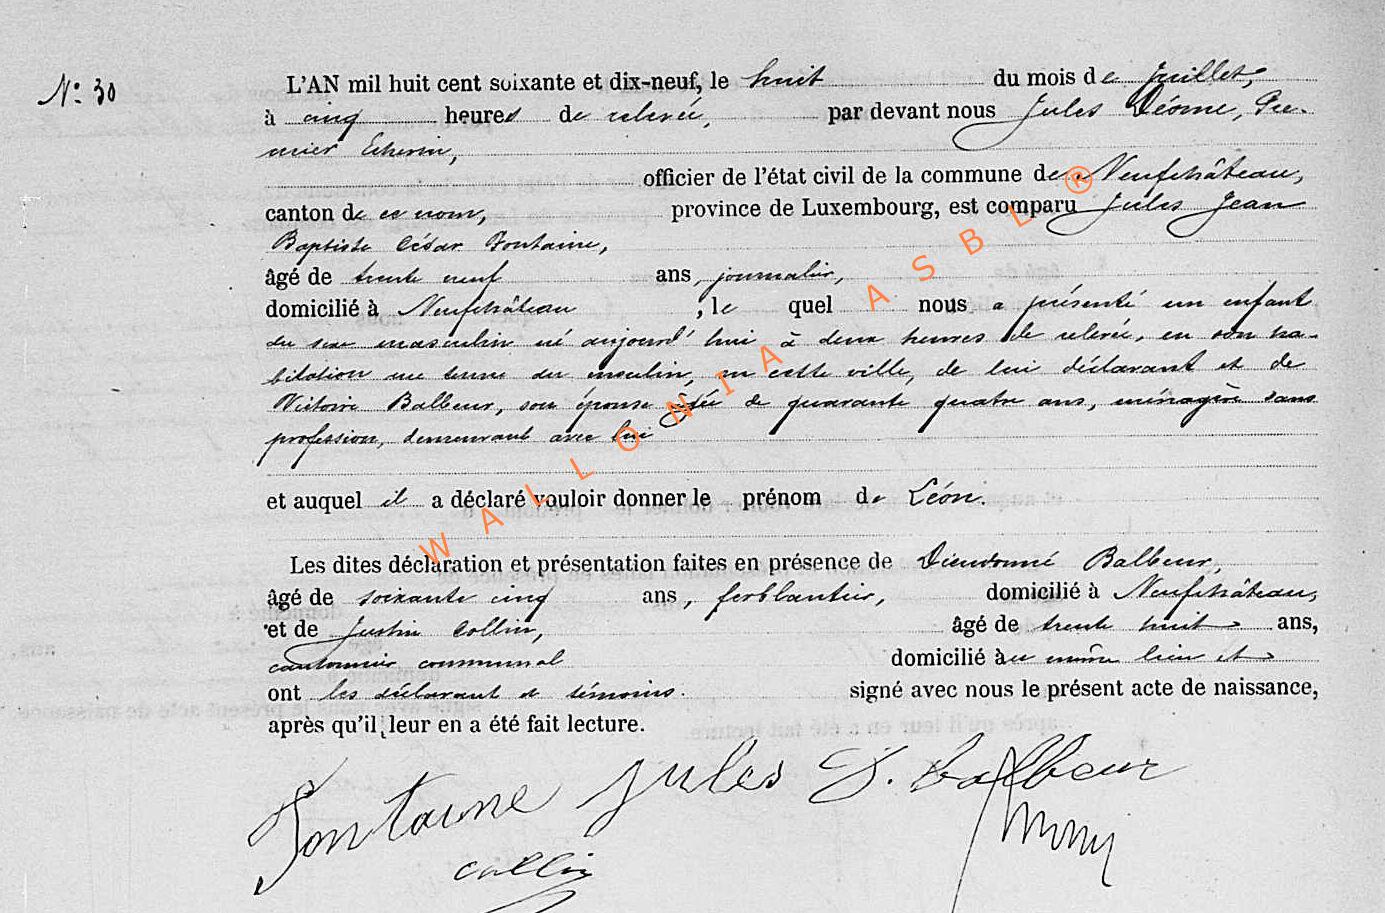 N° 30
L'AN mil huit cent soixante et dix-neuf, le huit du mois de Juillet,
à cinq heures de relevée, par devant nous Jules Déome, Pre-
mier Echevin,
officier de l'état civil de la commune de Neufchâteau,
canton de ce nom, province de Luxembourg, est comparu Jules Jean
Baptiste César Fontaine,
âgé de trente neuf ans, journalier,
domicilié à Neufchâteau, le quel nous a présenté un enfant
du sexe masculin né aujourd'hui à deux heures de relevée, en son ha-
bitation rue du moulin, en cette ville, de lui déclarant et de
Victoire Balbeur, son épouse âgée de quarante quatre ans, ménagère sans
profession, demeurant avec lui
et auquel il a déclaré vouloir donner le prénom de Léon.
Les dites déclaration et présentation faites en présence de Dieudonné Balbeur,
âgé de soixante cinq ans, ferblantier, domicilié à Neufchâteau,
et de Justin Collin, âgé de trente huit ans,
cantonnier communal domicilié au même lieu et
ont les déclarant & témoins signé avec nous le présent acte de naissance,
après qu'il leur en a été fait lecture.
Fontaine jules D. balbeur
collin
WALLONIA ASBL ®